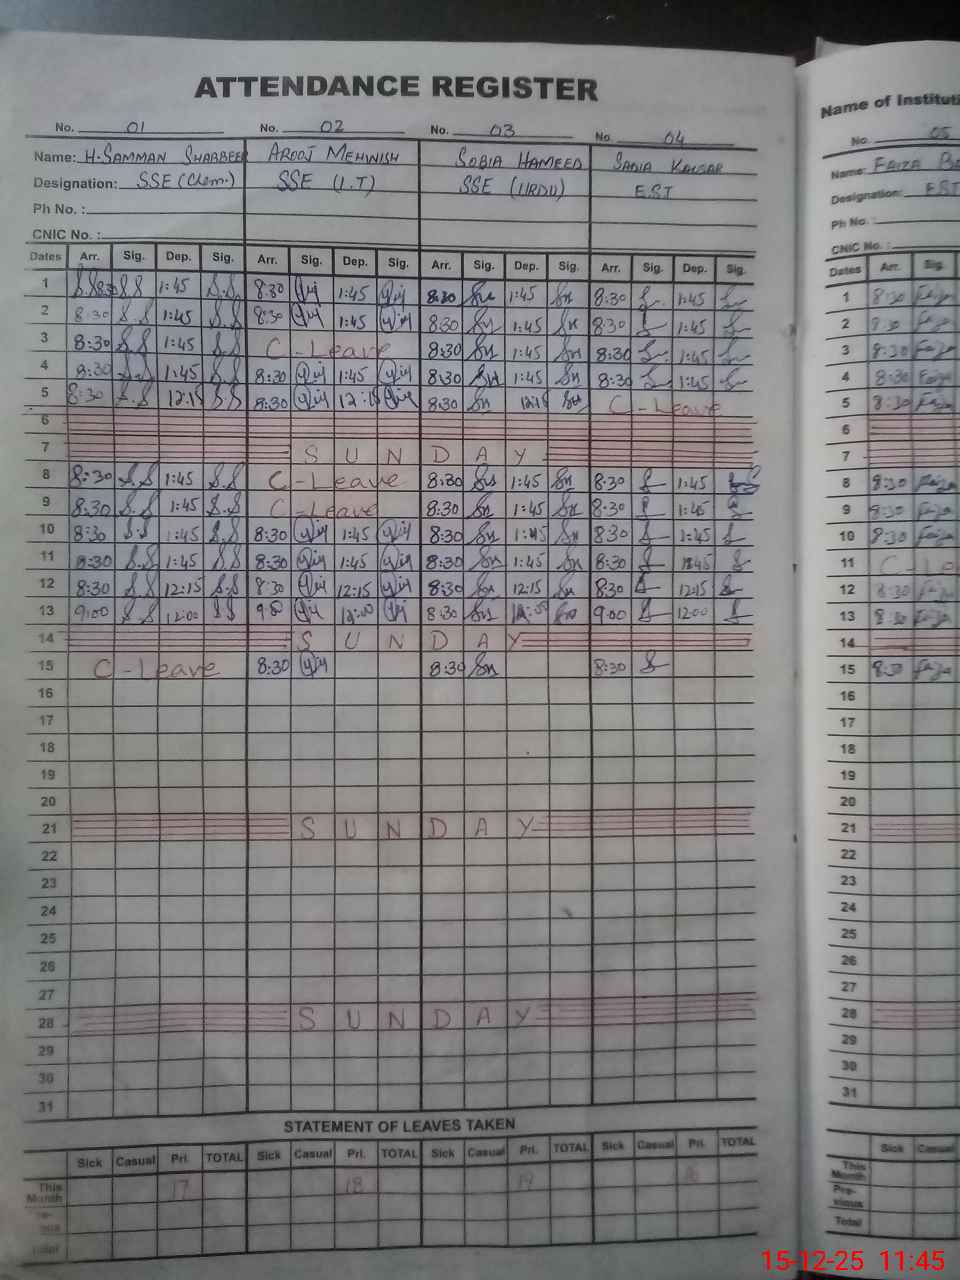 ATTENDANCE REGISTER
Name of Instituti
No. 01 No. 02 No. 03 No. 04 No. 05
Name: H-SAMMAN SHABBEER AROOJ MEHWISH SOBIA HAMEED SADIA KAUSAR Name: FAIZA
Designation: SSE (Chem.) SSE (I.T) SSE (URDU) E.S.T Designation: EST
Ph No. : Ph No. :
CNIC No. : CNIC No. :
Dates Arr. Sig. Dep. Sig. Arr. Sig. Dep. Sig. Arr. Sig. Dep. Sig. Arr. Sig. Dep. Sig. Dates Arr. Sig.
1 8:30 S.S 1:45 S.S 8:30 1:45 8:30 Sn 1:45 Sn 8:30 1:45 1 8:30 Faiza
2 8:30 S.S 1:45 S.S 8:30 1:45 8:30 Sn 1:45 Sn 8:30 1:45 2 8:30 Faiza
3 8:30 S.S 1:45 S.S C-Leave 8:30 Sn 1:45 Sn 8:30 1:45 3 8:30 Faiza
4 8:30 S.S 1:45 S.S 8:30 1:45 8:30 Sn 1:45 Sn 8:30 1:45 4 8:30 Faiza
5 8:30 S.S 12:15 S.S 8:30 12:15 8:30 Sn 12:15 Sn C-Leave 5 8:30 Faiza
6 6
7 SUNDAY 7
8 8:30 S.S 1:45 S.S C-Leave 8:30 Sn 1:45 Sn 8:30 1:45 8 8:30 Faiza
9 8:30 S.S 1:45 S.S C-Leave 8:30 Sn 1:45 Sn 8:30 1:45 9 8:30 Faiza
10 8:30 S.S 1:45 S.S 8:30 1:45 8:30 Sn 1:45 Sn 8:30 1:45 10 8:30 Faiza
11 8:30 S.S 1:45 S.S 8:30 1:45 8:30 Sn 1:45 Sn 8:30 1:45 11 C-Le
12 8:30 S.S 12:15 S.S 8:30 12:15 8:30 Sn 12:15 Sn 8:30 12:15 12 8:30 Faiza
13 9:00 S.S 12:00 S.S 9:00 12:00 8:30 Sn 12:00 Sn 9:00 12:00 13 8:30 Faiza
14 SUNDAY 14
15 C-Leave 8:30 8:30 Sn 8:30 15 8:30 Faiza
16 16
17 17
18 18
19 19
20 20
21 SUNDAY 21
22 22
23 23
24 24
25 25
26 26
27 27
28 SUNDAY 28
29 29
30 30
31 31
STATEMENT OF LEAVES TAKEN
Sick Casual Pri. TOTAL Sick Casual Pri. TOTAL Sick Casual Pri. TOTAL Sick Casual Pri. TOTAL Sick Casual
This Month 17 18 19 16 This Month
Pre-vious
Total Total
15-12-25 11:45